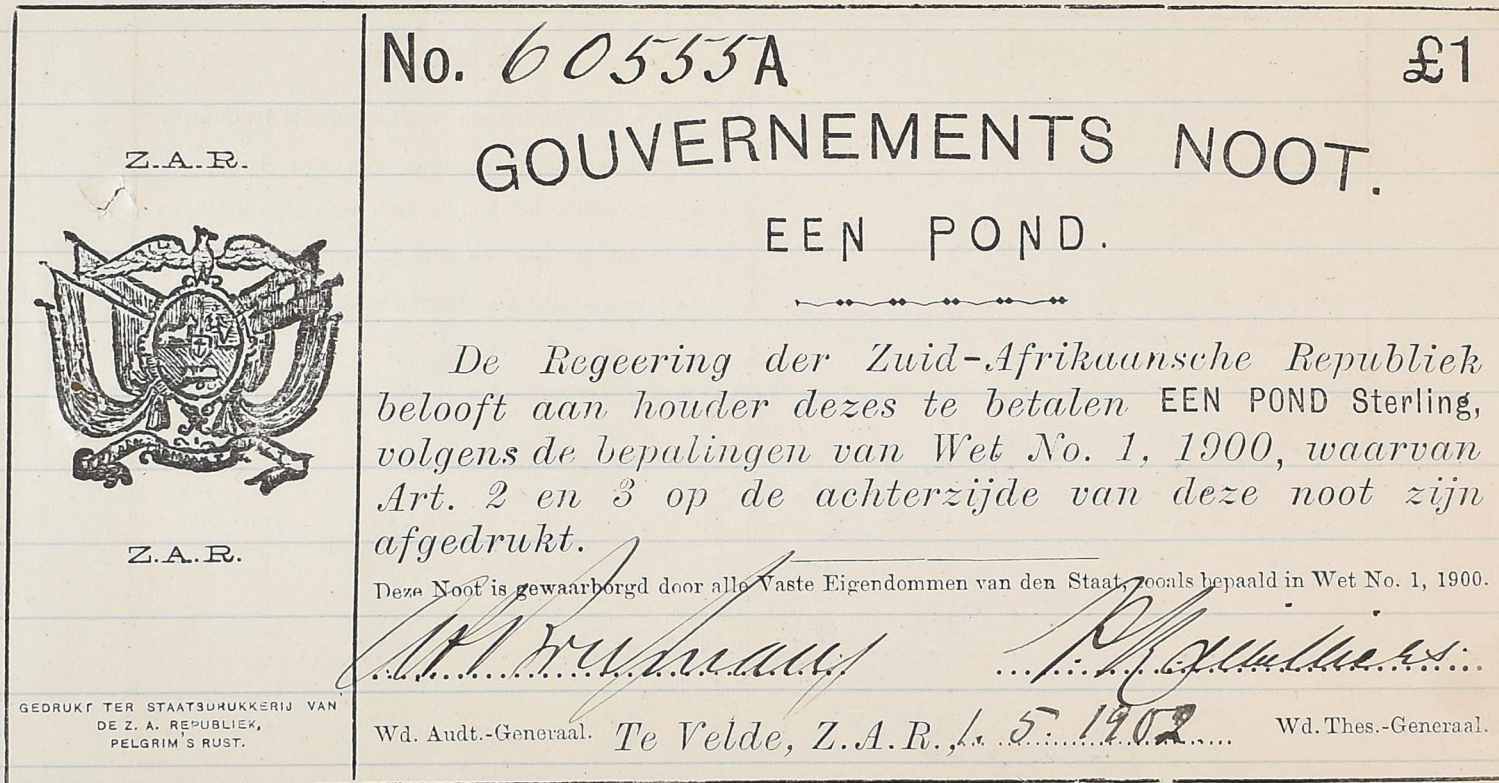 Z.A.R.
Z.A.R.
GEDRUKT TER STAATSDRUKKERIJ VAN
DE Z. A. REPUBLIEK,
PELGRIM'S RUST.
No. 60555A £1
GOUVERNEMENTS NOOT.
EEN POND.
De Regeering der Zuid-Afrikaansche Republiek
belooft aan houder dezes te betalen EEN POND Sterling,
volgens de bepalingen van Wet No. 1, 1900, waarvan
Art. 2 en 3 op de achterzijde van deze noot zijn
afgedrukt.
Deze Noot is gewaarborgd door alle Vaste Eigendommen van den Staat, zooals bepaald in Wet No. 1, 1900.
Wd. Audt.-Generaal. Te Velde, Z.A.R., 1. 5. 1902 Wd. Thes.-Generaal.